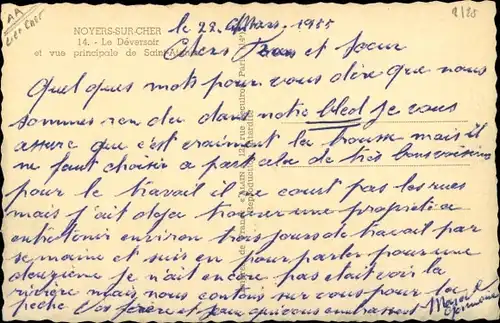 AA
Loir Cher
2/25
NOYERS-SUR-CHER
14. - Le Déversoir
et vue principale de Saint-Aignan
le 22 Mars 1955
Chers Frere et soeur
Quelques mots pour vous dire que nous
sommes rendu dans notre bled je vous
assure que c'est vraiment la brousse mais il
ne faut choisir a part cela de très bons voisins
pour le travail il ne court pas les rues
mais j'ait deja trouver une propriété a
entretenir environ trois jours de travail par
semaine et suis en pourparler pour une
deuxième je n'ait encore pas etait voir la
rivière mais nous contons sur vous pour la
pêche Vos frère et soeur qui vous embrassent